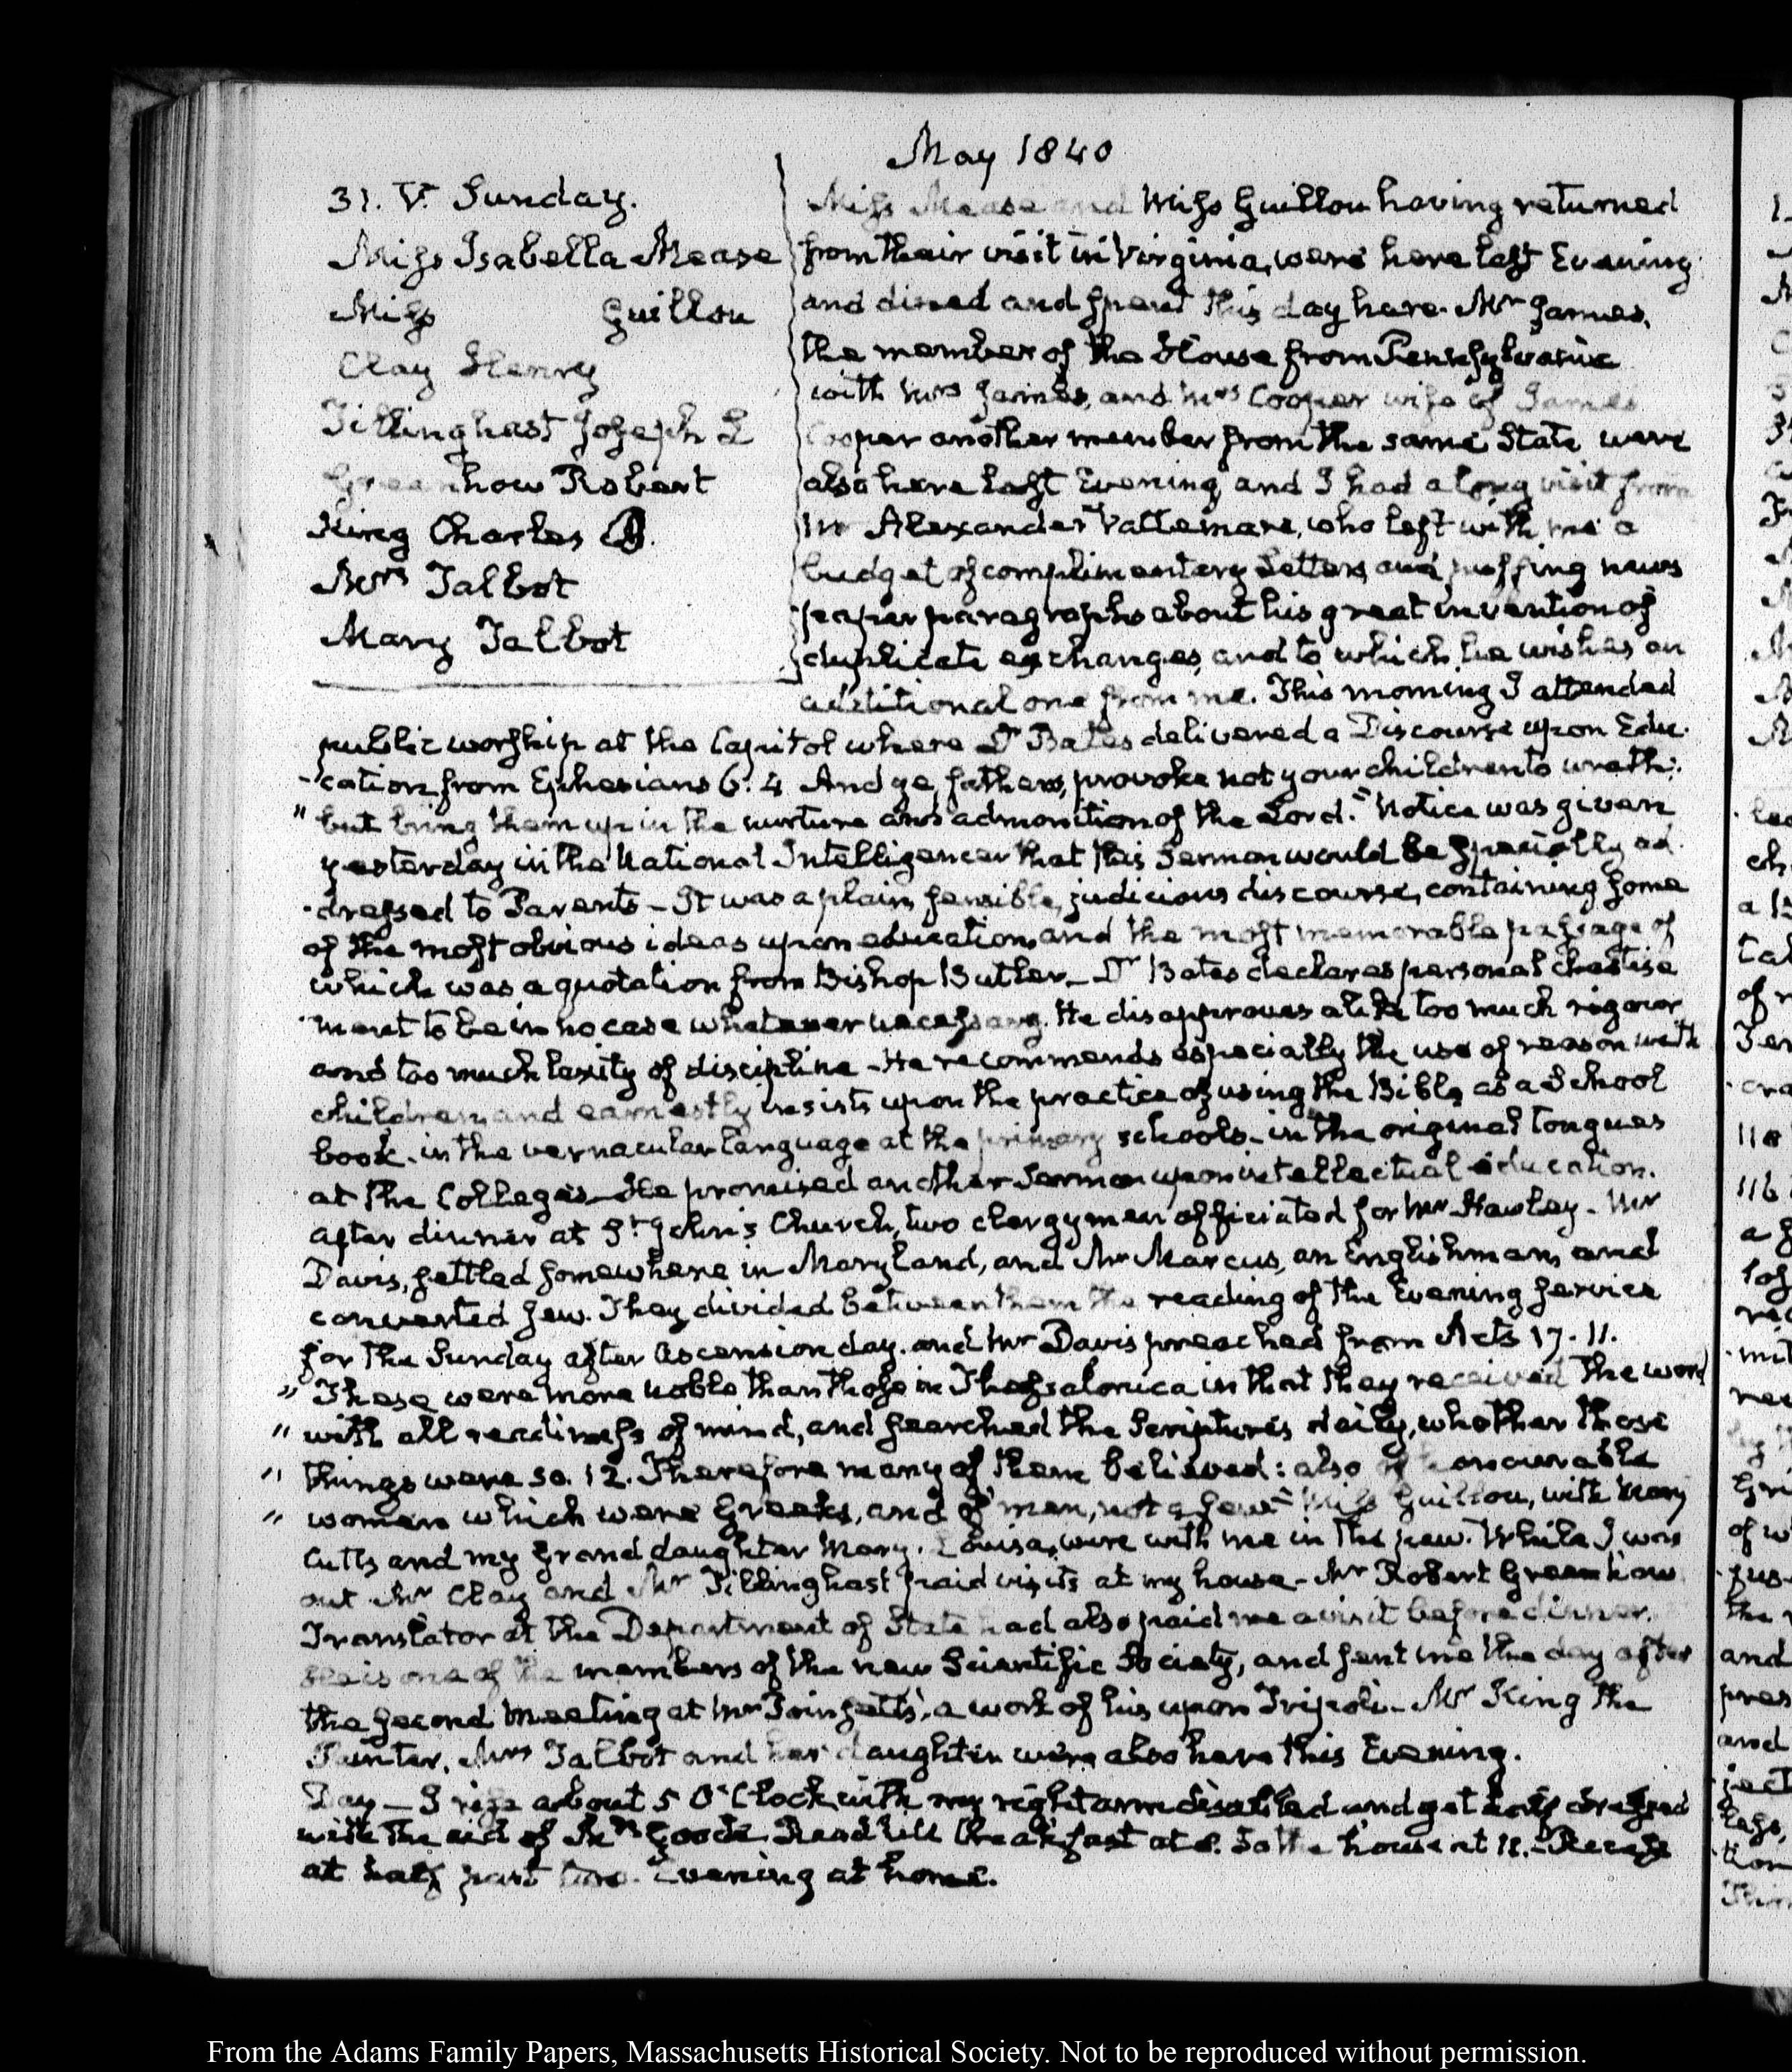 May 1840
31. V. Sunday.
Miss Isabella Mease
Miss Guillou
Clay Henry
Tillinghast Joseph L
Greenhow Robert
King Charles B.
Mrs Talbot
Mary Talbot
Miss Mease and Miss Guillou having returned
from their visit in Virginia, were here last Evening
and dined and spent this day here. Mr James,
the member of the House from Pennsylvania
with Mrs James, and Mrs Cooper wife of James
Cooper another member from the same State were
also here last Evening and I had a long visit from
Mr Alexander Vattemare, who left with me a
budget of complimentary Letters and puffing news
paper paragraphs about his great invention of
duplicate exchanges, and to which he wishes an
additional one from me. This morning I attended
public worship at the Capitol where Dr Bates delivered a Discourse upon Edu-
-cation from Ephesians 6. 4 And ye, fathers, provoke not your children to wrath:
" but bring them up in the nurture and admonition of the Lord." Notice was given
yesterday in the National Intelligencer that this Sermon would be specially ad-
-dressed to Parents - It was a plain, sensible, judicious discourse, containing some
of the most obvious ideas upon education, and the most memorable passage of
which was a quotation from Bishop Butler - Dr Bates declares personal chastise
-ment to be in no case whatever necessary. He disapproves alike too much rigour
and too much laxity of discipline - He recommends especially the use of reason with
children, and earnestly insists upon the practice of using the Bible as a School
book - in the vernacular language at the primary schools - in the original tongues
at the Colleges - He promised another Sermon upon intellectual education.
After dinner at St John's Church, two clergymen officiated for Mr Hawley - Mr
Davis, settled somewhere in Maryland, and Mr Marcus, an Englishman, and
converted Jew. They divided between them the reading of the Evening service
for the Sunday after Ascension day. and Mr Davis preached from Acts 17. 11.
" These were more noble than those in Thessalonica in that they received the word
" with all readiness of mind, and searched the Scriptures daily, whether those
" things were so. 12. Therefore many of them believed: also of honourable
" women which were Greeks, and of men, not a few" Miss Guillou, with Mary
Cutts and my Grand daughter Mary. Louisa, were with me in the pew. While I was
out Mr Clay and Mr Tillinghast paid visits at my house - Mr Robert Greenhow
Translator at the Department of State had also paid me a visit before dinner.
He is one of the members of the new Scientific Society, and sent me the day after
the second meeting at Mr Poinsett's, a work of his upon Tripoli - Mr King the
Painter, Mrs Talbot and her daughter were also here this Evening.
Day - I rise about 5 O'Clock with my right arm disabled and get half dressed
with the aid of Mrs Goods. Read till breakfast at 8. To the house at 11. - Recess
at half past two. Evening at home.
From the Adams Family Papers, Massachusetts Historical Society. Not to be reproduced without permission.